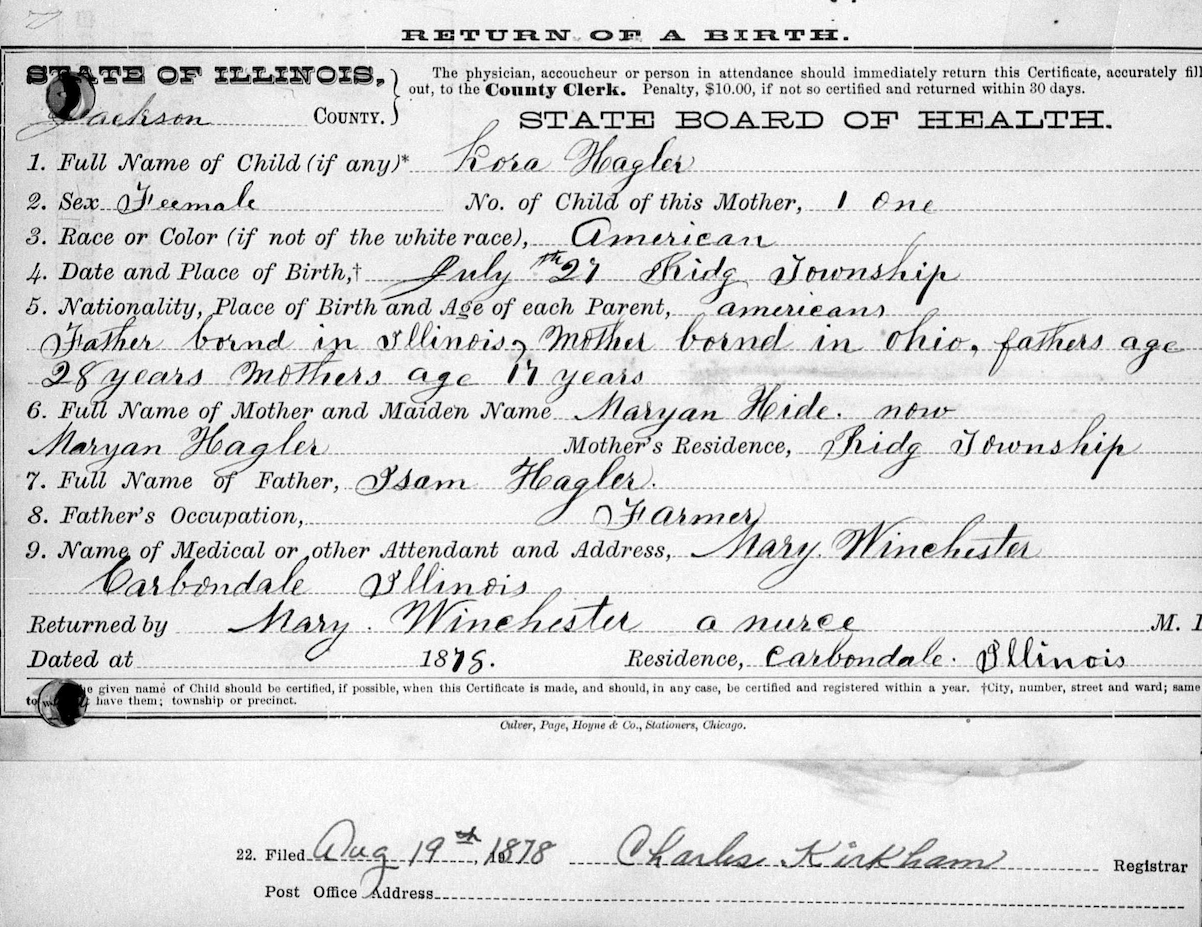 RETURN OF A BIRTH.
STATE OF ILLINOIS,
Jackson COUNTY.
The physician, accoucheur or person in attendance should immediately return this Certificate, accurately fill
out, to the County Clerk. Penalty, $10.00, if not so certified and returned within 30 days.
STATE BOARD OF HEALTH.
1. Full Name of Child (if any)* Lora Hagler
2. Sex Feemale No. of Child of this Mother, 1 one
3. Race or Color (if not of the white race), American
4. Date and Place of Birth,† July th 27 Ridg Township
5. Nationality, Place of Birth and Age of each Parent, americans
Father bornd in Illinois, Mother bornd in ohio, fathers age
28 years Mothers age 17 years
6. Full Name of Mother and Maiden Name Maryan Hide. now
Maryan Hagler Mother's Residence, Ridg Township
7. Full Name of Father, Isam Hagler.
8. Father's Occupation, Farmer
9. Name of Medical or other Attendant and Address, Mary. Winchester
Carbondale Illinois
Returned by Mary. Winchester a nurce M.
Dated at 1878. Residence, Carbondale. Illinois
given name of Child should be certified, if possible, when this Certificate is made, and should, in any case, be certified and registered within a year. †City, number, street and ward; same
to have them; township or precinct.
Culver, Page, Hoyne & Co., Stationers, Chicago.
22. Filed Aug 19th, 1878 Charles Kirkham Registrar
Post Office Address